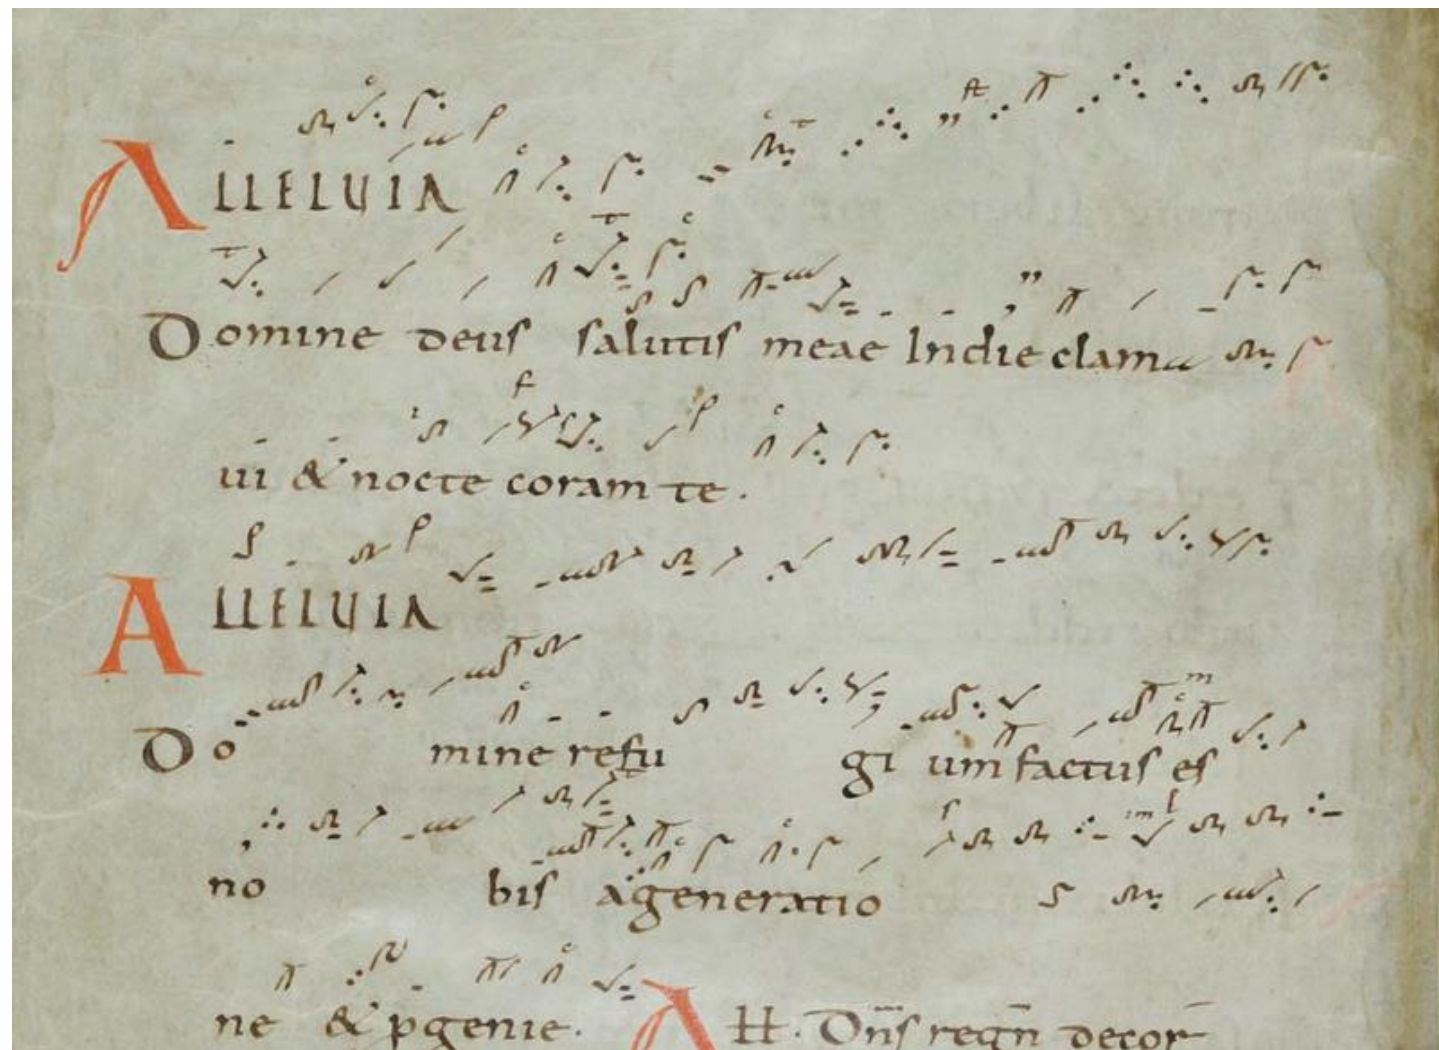 ALLELUIA
Domine deus salutis meae Indie clama
ui & nocte coram te.
ALLELUIA
Do mine refu gi um factus es
no bis a generatio
ne & pgenie. All. Dns regn decor